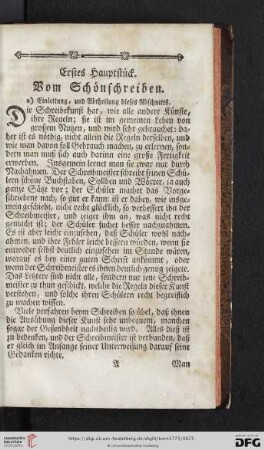 Erstes Hauptstück.
Vom Schönschreiben.
a) Einleitung, und Abtheilung dieses Abschnitts.
Die Schreibekunst hat, wie alle andere Künste,
ihre Regeln; sie ist im gemeinen Leben von
grossem Nutzen, und wird sehr gebrauchet: da-
her ist es nöthig, nicht allein die Regeln derselben, und
wie man davon soll Gebrauch machen, zu erlernen, son-
dern man muß sich auch darinn eine große Fertigkeit
erwerben. Insgemein lernet man sie zwar nur durch
Nachahmen. Der Schreibmeister schreibt seinen Schü-
lern schöne Buchstaben, Syllben und Wörter, ja auch
ganze Sätze vor; der Schüler machet das Vorge-
schriebene nach, so gut er kann: ist er dabey, wie insge-
mein geschieht, nicht recht glücklich, so verbessert ihn der
Schreibmeister, und zeiget ihm an, was nicht recht
gemacht ist; der Schüler suchet besser nachzuahmen.
Es ist aber leicht einzusehen, daß Schüler wohl nach-
ahmen, und ihre Fehler leicht bessern würden, wenn sie
entweder selbst deutlich einzusehen im Stande wären,
worauf es bey einer guten Schrift ankommt, oder
wenn der Schreibmeister es ihnen deutlich genug zeigete.
Das Letztere sind nicht alle, sondern nur jene Schreibe-
meister zu thun geschickt, welche die Regeln dieser Kunst
verstehen, und solche ihren Schülern recht begreiflich
zu machen wissen.
Viele verfahren beym Schreiben so übel, daß ihnen
die Ausübung dieser Kunst sehr unbequem, manchen
sogar der Gesundheit nachtheilig wird. Alles dieß ist
zu bedenken, und der Schreibmeister ist verbunden, daß
er gleich im Anfange seiner Unterweisung darauf seine
Gedanken richte.
A Man
https://digi.ub.uni-heidelberg.de/diglit/
© Universitätsbibliothek Heidelberg
gefördert durch die
DFG